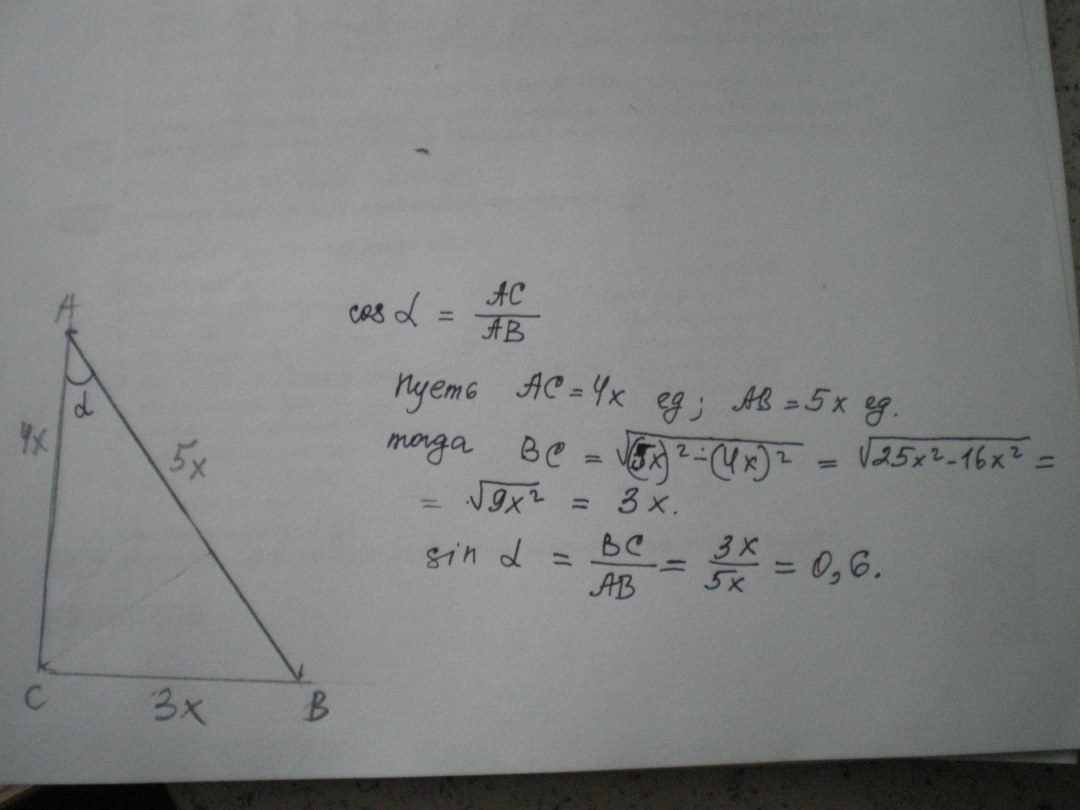 A
α
4x
5x
C
3x
B
cos α = AC/AB
Пусть AC = 4x ед; AB = 5x ед.
тогда BC = √(5x)² - (4x)² = √25x² - 16x² =
= √9x² = 3x.
sin α = BC/AB = 3x/5x = 0,6.